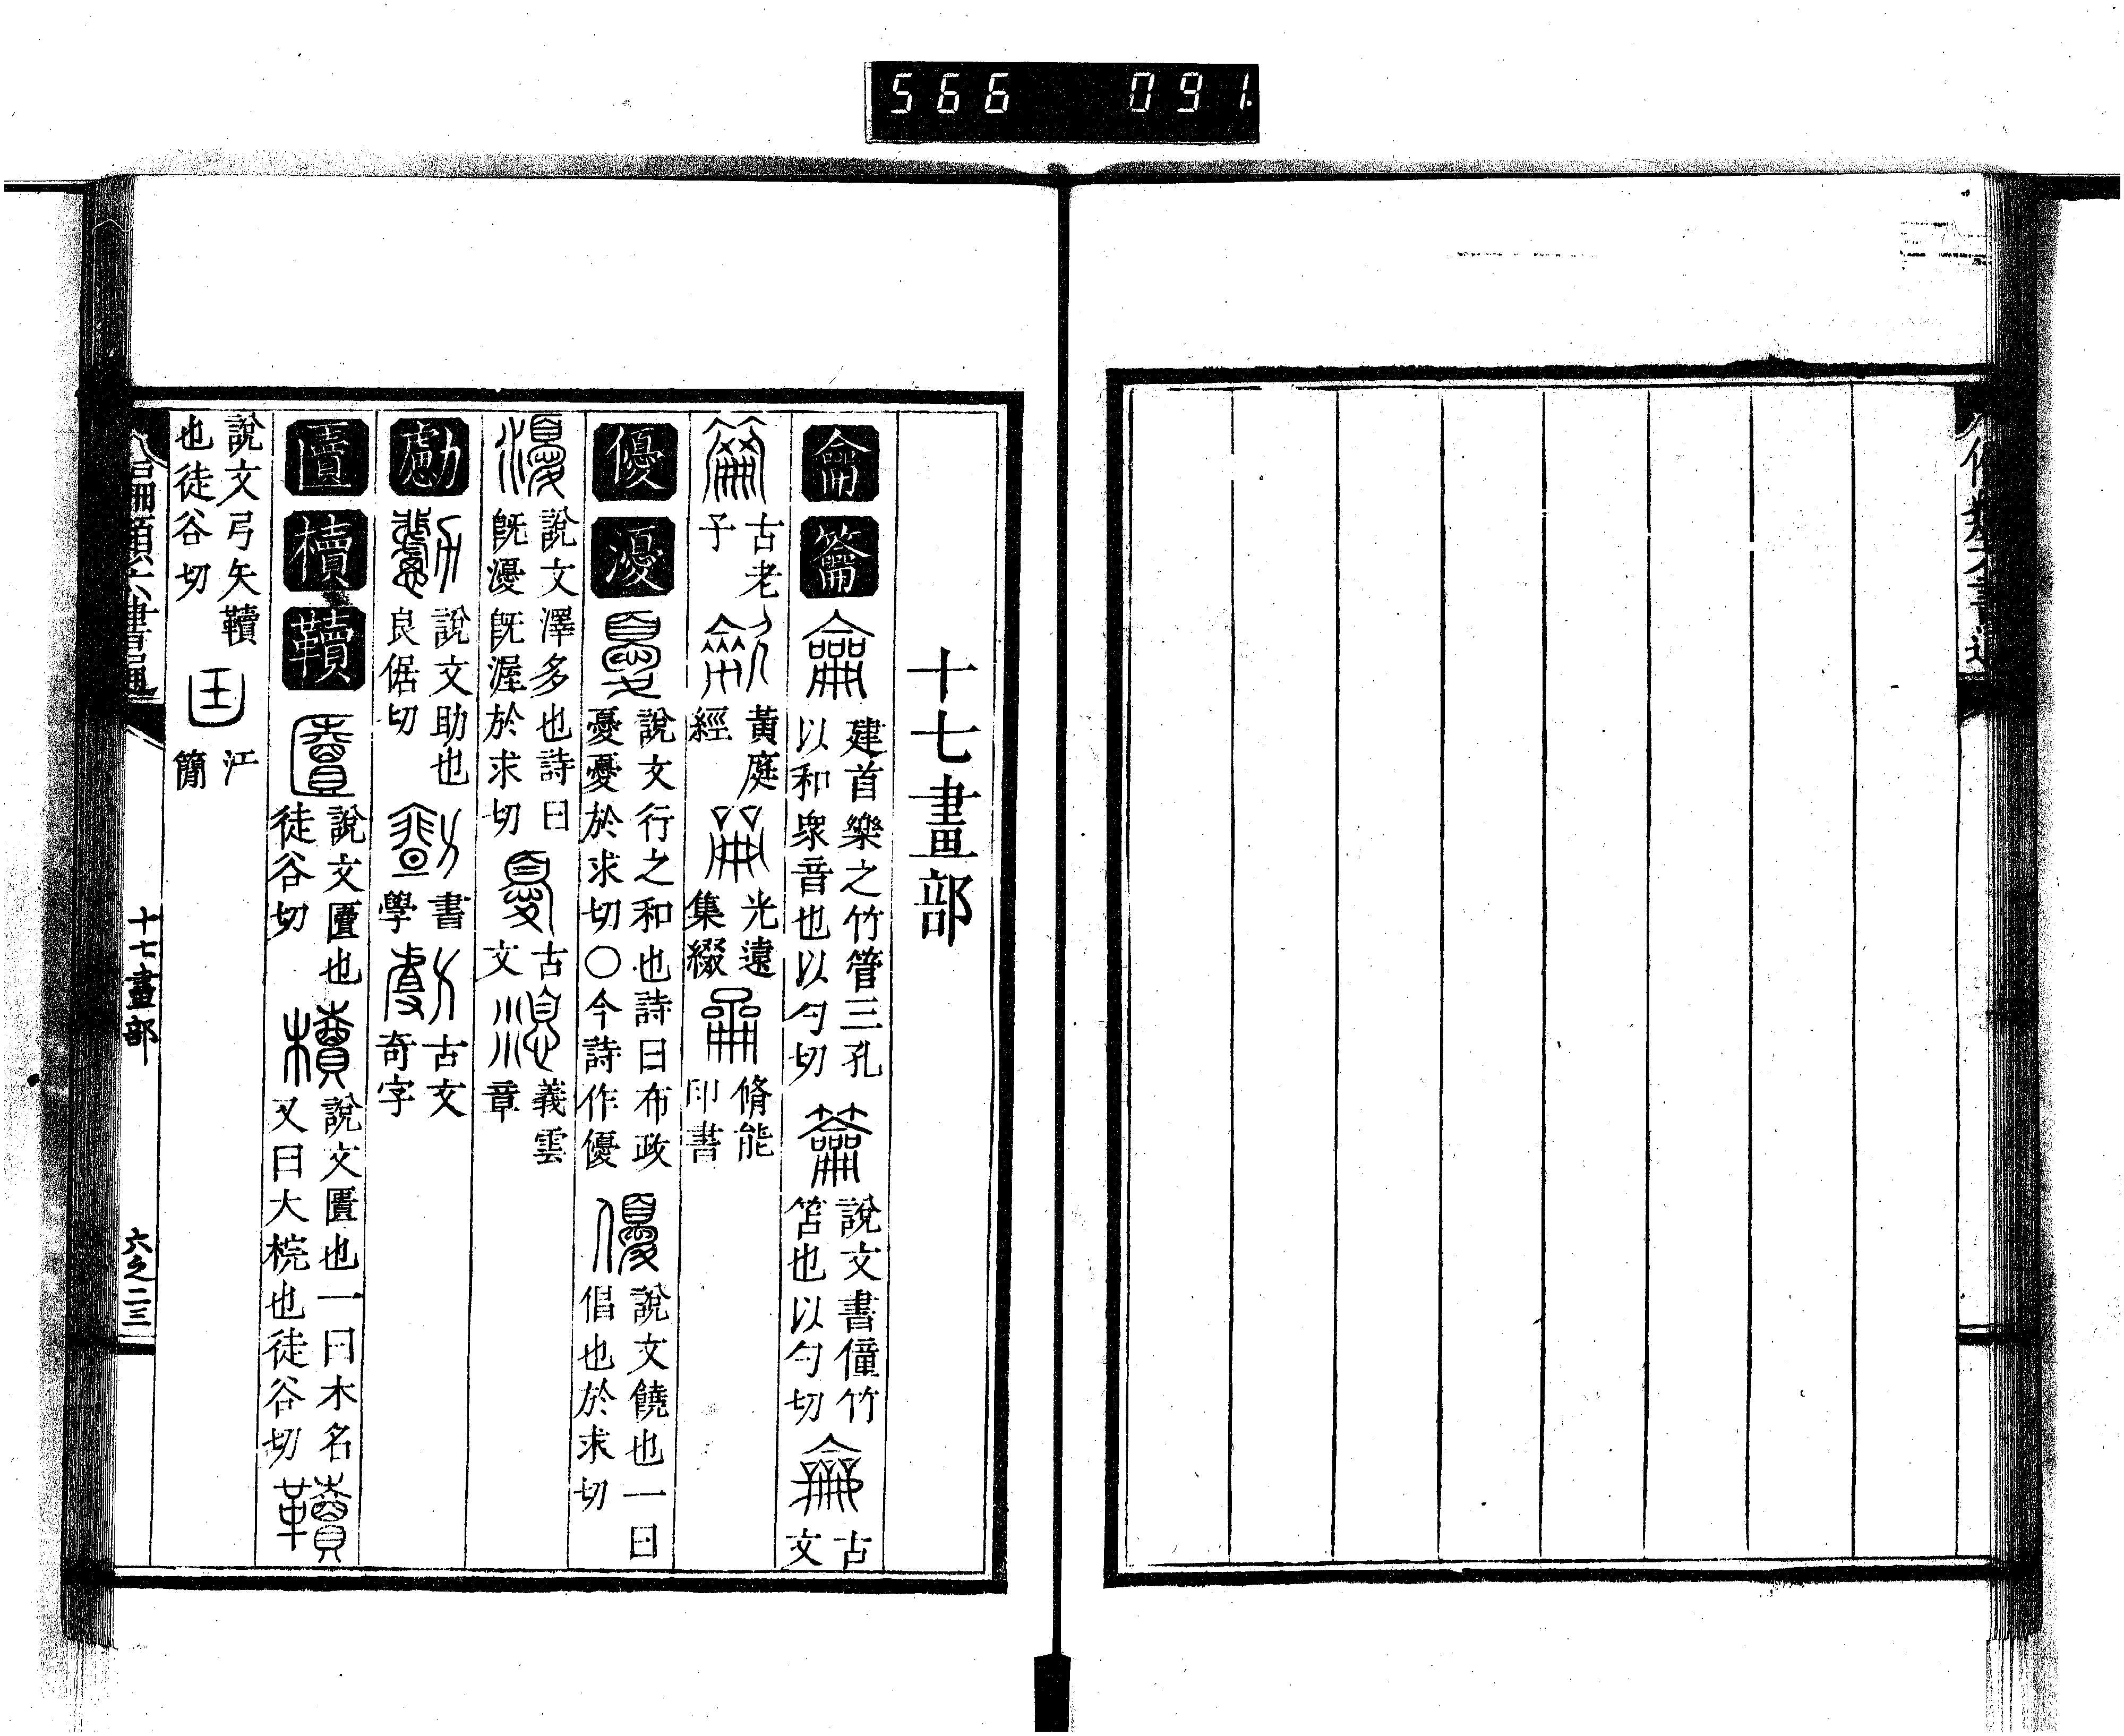 566 091
十七畫部
龠 籥 建首樂之竹管三孔以和衆音也以勺切 說文書僮竹笘也以勺切 古文
古老子 黃庭經 光遠集綴 脩能印書
優 瀀 說文行之和也詩曰布政憂憂於求切○今詩作優 說文饒也一曰倡也於求切
說文澤多也詩曰旣瀀旣渥於求切 古文 義雲章
勴 說文助也良倨切 書學 古文奇字
匵 櫝 韇 說文匱也徒谷切 說文匱也一曰木名又曰大梡也徒谷切
說文弓矢韇也徒谷切 江簡
十七畫部 六之二三